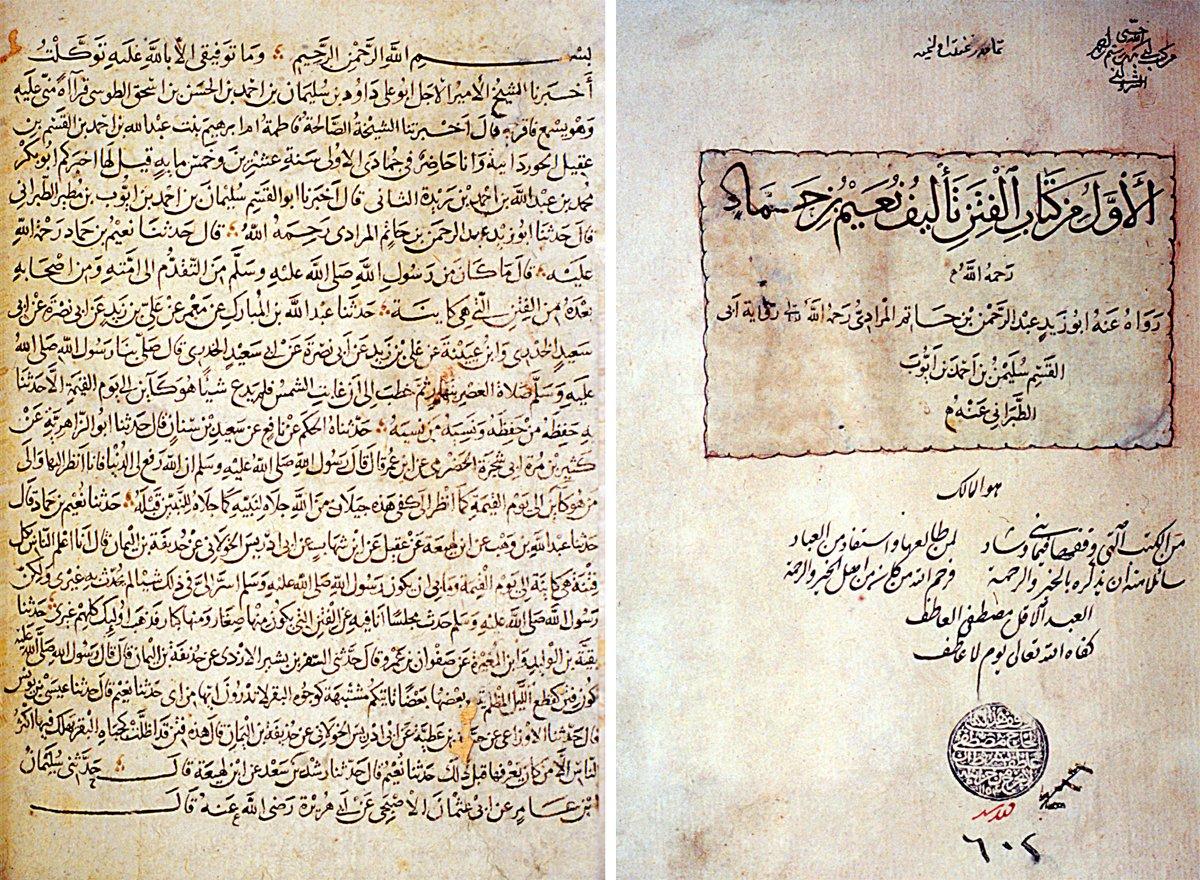 الأول من كتاب الفتن تأليف نعيم بن حماد
رحمه الله
رواه عنه ابو زيد عبد الرحمن بن حاتم المرادي رحمه الله رواية ابي
القسم سليمن بن احمد بن أيوب
الطبراني عنه
هو المالك
من الكتب التي وقفها لمن طالعها واستفاد من العباد
سائلا منه ان يذكره بالخير والرحمة ورحم الله من كان من اهل الخير والرحمة
العبد الاقل مصطفى العاطف
كفاه الله تعالى يوم لا عاطف
٦٠٢
بسم الله الرحمن الرحيم وما توفيقي الا بالله عليه توكلت
أخبرنا الشيخ الأمير الاجل ابو علي داود بن سليمان بن احمد بن الحسن بن اسحق الطوسي قراءة مني عليه
وهو يسمع فاقر به قال اخبرتنا الشيخة الصالحة فاطمة ام ابرهيم بنت عبد الله بن احمد بن القسم بن
عقيل الجوزدانية وانا حاضر في جمادى الاولى سنة عشرين وخمس مايه قيل لها اخبركم ابو بكر
محمد بن عبد الله بن احمد بن ريذة الثاني قال اخبرنا ابو القسم سليمان بن احمد بن ايوب بن مطير الطبراني
قال حدثنا ابو زيد عبد الرحمن بن حاتم المرادي رحمه الله قال حدثنا نعيم بن حماد رحمة الله
عليه قال ما كان من رسول الله صلى الله عليه وسلم من التقدم الى امته ومن اصحابه
بعده من الفتن التي هي كاينة حدثنا عبد الله بن المبارك عن معمر عن علي بن زيد عن ابي نضرة عن ابي
سعيد الخدري وابن عيينة عن علي بن زيد عن أبي نضرة عن ابي سعيد الخدري قال صلى بنا رسول الله صلى الله
عليه وسلم صلاة العصر بنهار ثم خطب الى ان غابت الشمس فلم يدع شيئا هو كاين الى يوم القيمة الا حدثنا
به حفظه من حفظه ونسيه من نسيه حدثنا الحكم بن نافع عن سعيد بن سنان قال حدثنا ابو الزاهرية عن
كثير بن مرة ابي شجرة الحضرمي عن ابن عمر قال قال رسول الله صلى الله عليه وسلم ان الله رفع لي الدنيا فانا انظر اليها والى
ما هو كاين الى يوم القيمة كما انظر الى كفي هذه جليان من الله جلاه لنبيه كما جلاه للنبيين قبله حدثنا نعيم بن حماد قال
حدثنا عبد الله بن وهب عن ابن لهيعة عن عقيل عن ابن شهاب عن ابي ادريس الخولاني عن حذيفة بن اليمان قال أنا اعلم الناس بكل
فتنة هي كاينة الى يوم القيمة وما بي ان يكون رسول الله صلى الله عليه وسلم اسر الي في ذلك شيئا لم يحدث به غيري ولكن
رسول الله صلى الله عليه وسلم حدث مجلسا انا فيه عن الفتن التي يكون منها صغار ومنها كبار فذهب اوليك كلهم غيري حدثنا
بقية بن الوليد وابو المغيرة عن صفوان بن عمرو قال حدثني السفر بن بشير الازدي عن حذيفة بن اليمان قال قال رسول الله صلى الله عليه
تكون فتن كقطع الليل المظلم بعضها بعضا تاتيكم مشتبهة كوجوه البقر لا تدرون ايها من اي حدثنا نعيم قال حدثنا عيسى بن يونس
قال حدثنا الاوزاعي عن حسان بن عطية عن ابي ادريس الخولاني عن حذيفة بن اليمان قال هذه فتن قد اظلت كجباه البقر يهلك فيها اكثر
الناس الا من كان يعرفها قبل ذلك حدثنا نعيم قال حدثنا رشدين بن سعد عن ابن لهيعة قال حدثني سليمان
بن عامر عن ابي عثمان الاصبحي عن ابي هريرة رضي الله عنه قال